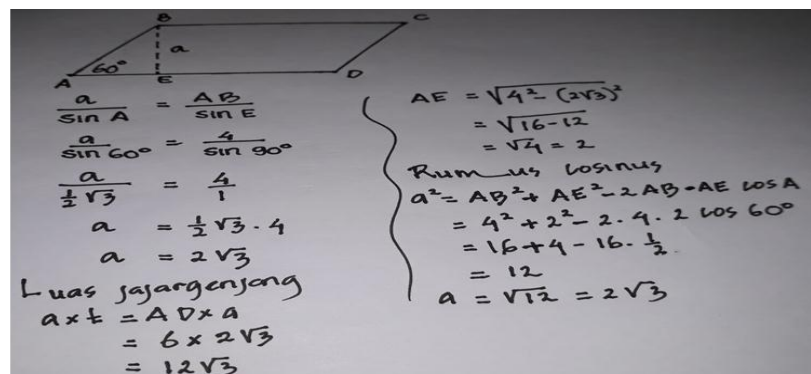 B
C
a
60°
A
E
D
a / sin A = AB / sin E
a / sin 60° = 4 / sin 90°
a / ½√3 = 4 / 1
a = ½√3 · 4
a = 2√3
Luas jajargenjang
a x t = AD x a
= 6 x 2√3
= 12√3
AE = √4² - (2√3)²
= √16-12
= √4 = 2
Rumus cosinus
a² = AB² + AE² - 2 AB · AE cos A
= 4² + 2² - 2 . 4 . 2 cos 60°
= 16 + 4 - 16 . ½
= 12
a = √12 = 2√3